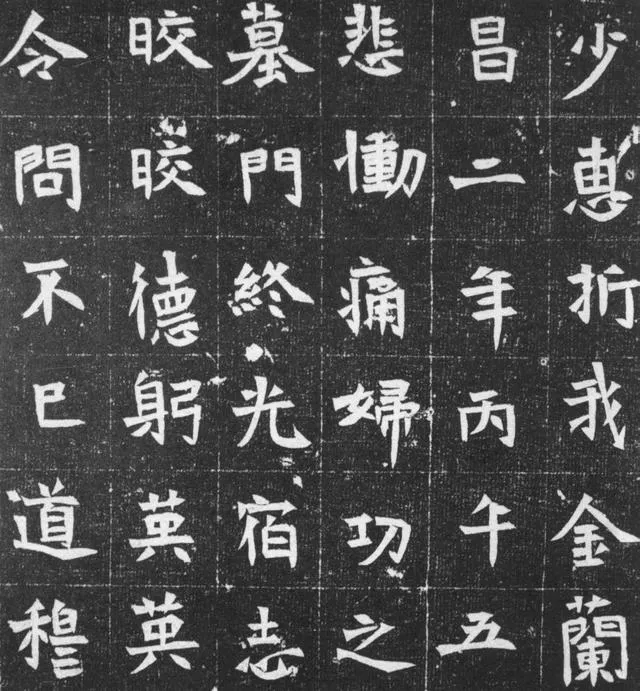 少惠折我金蘭
昌二年丙午五
悲慟痛婦功之
墓門終光宿志
晈晈德躬英英
令問不巳道穆